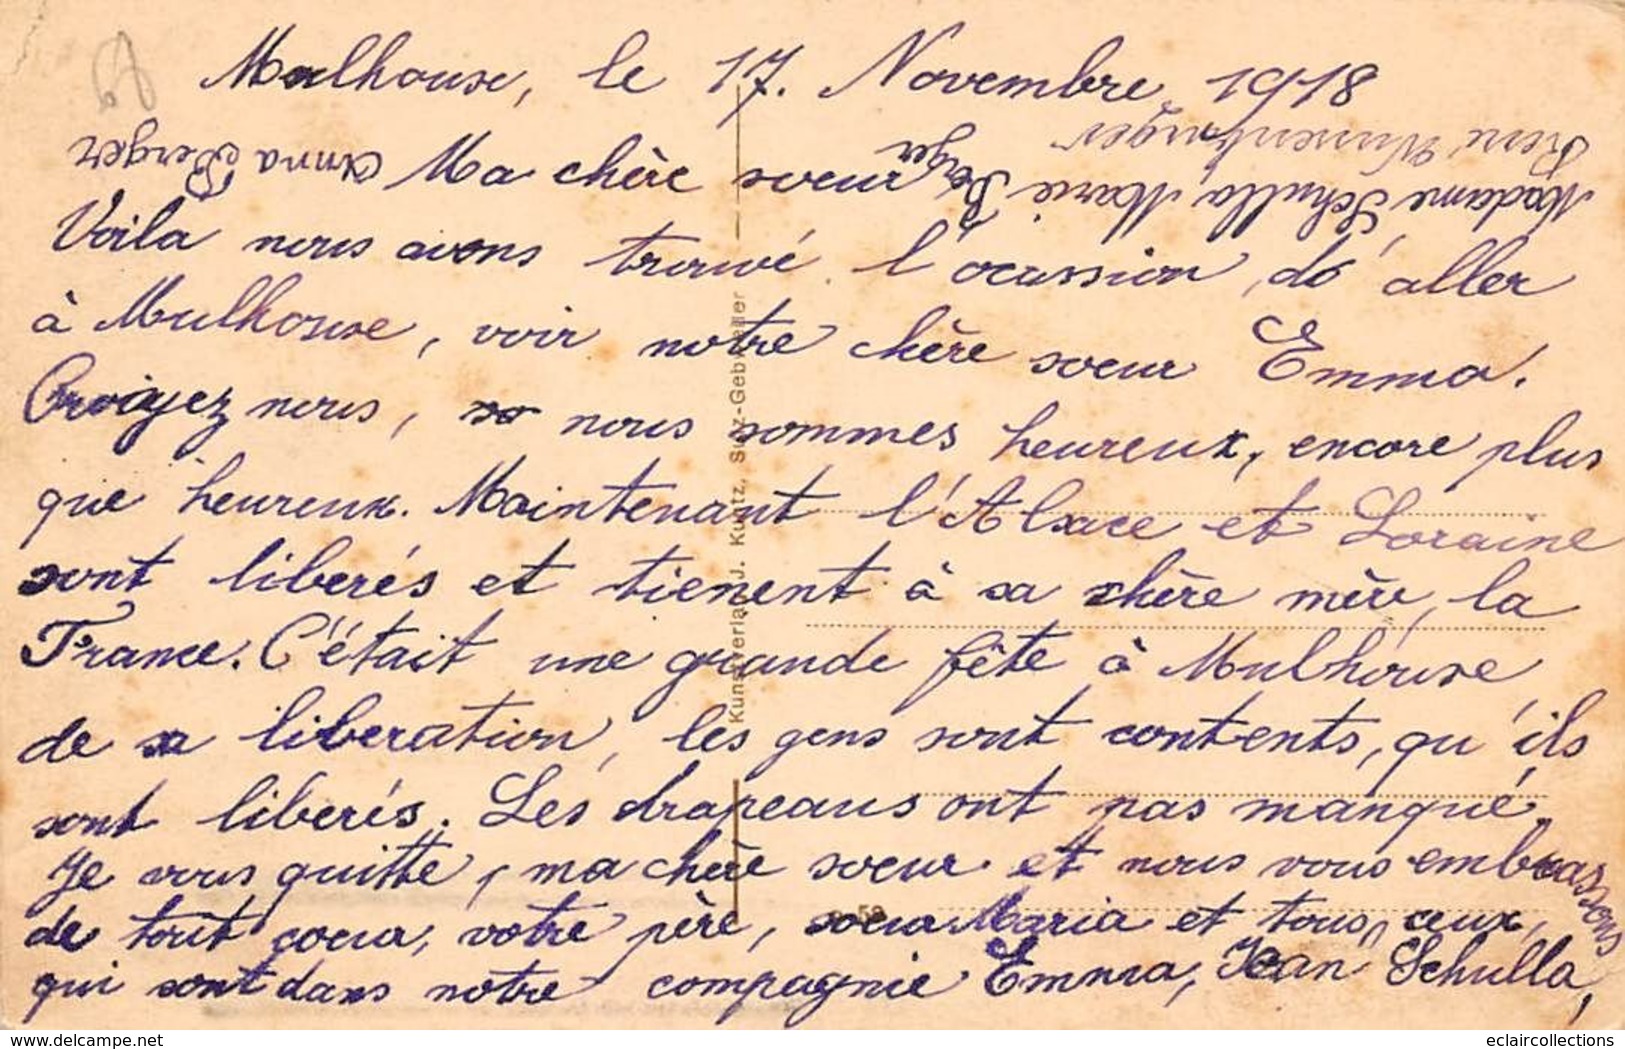 Mulhouse, le 17. Novembre 1918
Ma chère soeur
Voila nous avons trouvé l'ocassion, de aller
à Mulhouse, voir notre chère soeur Emma.
Croiyez nous, nous sommes heureux, encore plus
que heureux. Maintenant l'Alsace et Loraine
sont liberés et tienent à sa chère mère, la
France. C'était une grande fête à Mulhouse,
de sa liberation, les gens sont contents, qu'ils
sont liberés. Les drapeaus ont pas manqué.
Je vous quitte, ma chère soeur et nous vous embrassons
de tout coeur, votre père, soeur Maria et tous ceux,
qui sont dans notre compagnie Emma, Jean Schulla,
Madame Schulla, Marie Berger
Anna Berger
Kunstverlag J. Kuntz, Sulz-Gebweiler
www.delcampe.net
eclaircollections